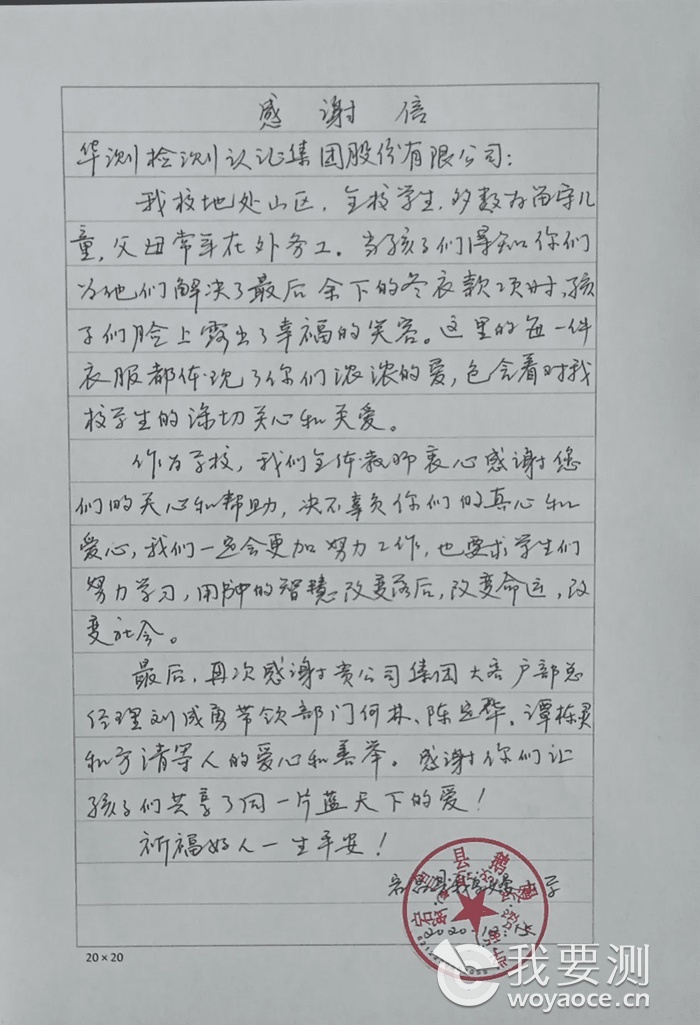 感 谢 信
华测检测认证集团股份有限公司：
我校地处山区，全校学生，多数为留守儿
童，父母常年在外务工。当孩子们得知你们
为他们解决了最后余下的冬衣款项时，孩
子们脸上露出了幸福的笑容。这里的每一件
衣服都体现了你们浓浓的爱，包含着对我
校学生的深切关心和关爱。
作为学校，我们全体教师衷心感谢您
们的关心和帮助，决不辜负你们的真心和
爱心，我们一定会更加努力工作，也要求学生们
努力学习，用的智慧改变落后，改变命运，改
变社会。
最后，再次感谢贵公司集团大客户部总
经理刘成勇带领部门何林、陈定华、谭栋灵
和方清等人的爱心和善举。感谢你们让
孩子们共享了同一片蓝天下的爱！
祈福好人一生平安！
县 学
2020.12.
20×20
我要测
woyaoce.cn